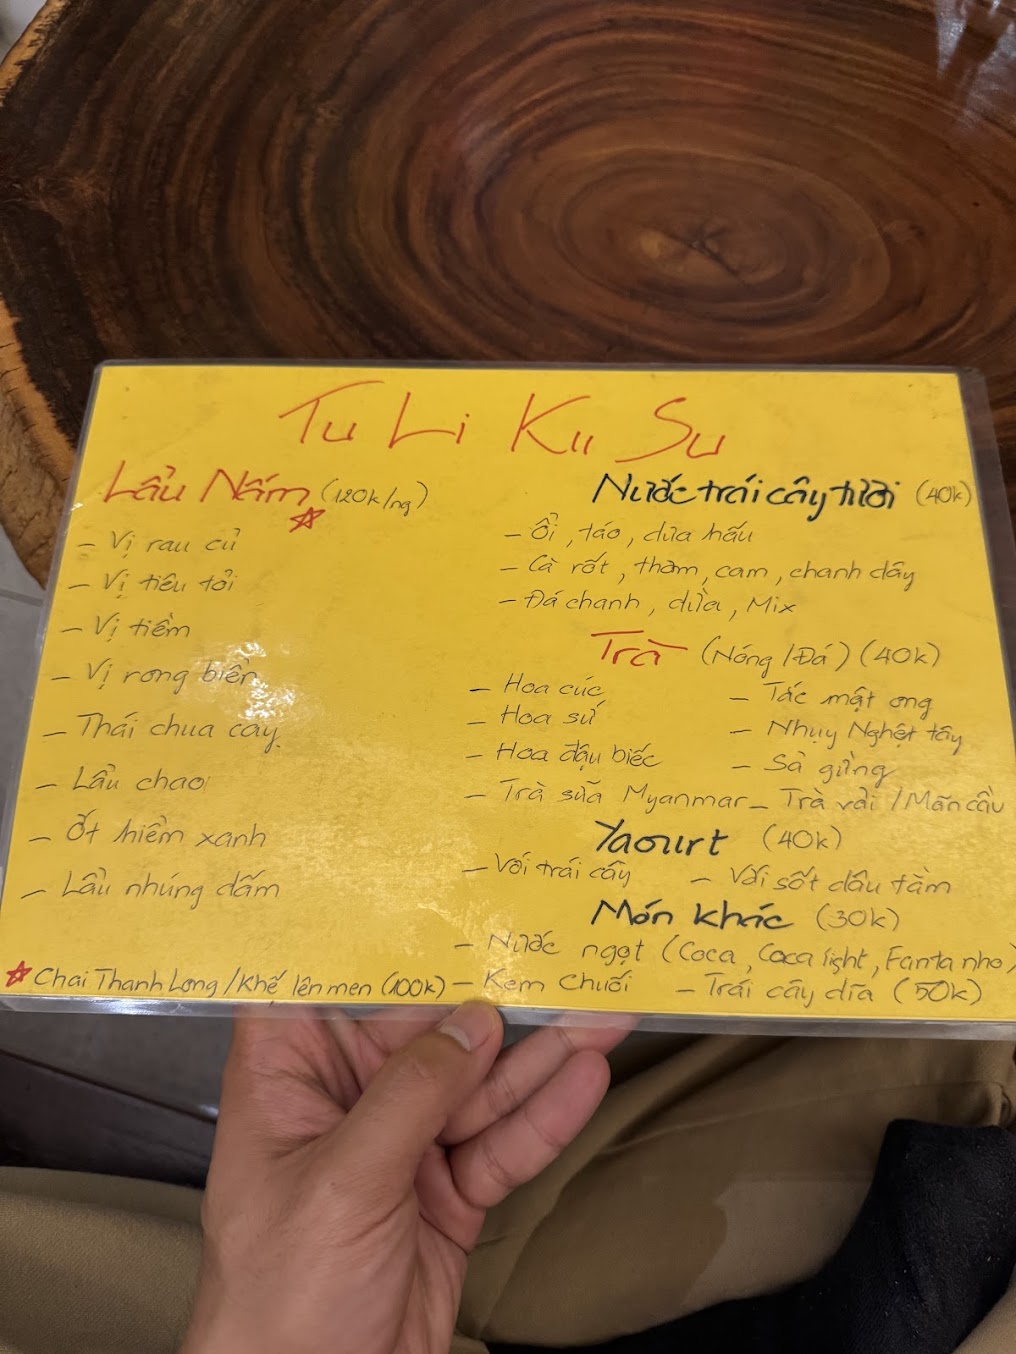 Tu Li Ku Su
Lẩu Nấm (120k/ng)
- Vị rau củ
- Vị tiêu tỏi
- Vị tiềm
- Vị rong biển
- Thái chua cay
- Lẩu chao
- Ớt hiểm xanh
- Lẩu nhúng dấm
☆ Chai Thanh Long / Khế lên men (100k)
Nước trái cây tươi (40k)
- Ổi, táo, dưa hấu
- Cà rốt, thơm, cam, chanh dây
- Đá chanh, dừa, Mix
Trà (Nóng/Đá) (40k)
- Hoa cúc
- Hoa sứ
- Hoa đậu biếc
- Trà sữa Myanmar
- Tắc mật ong
- Nhụy Nghệ tây
- Sả gừng
- Trà vải / Mãn cầu
Yaourt (40k)
- Với trái cây - Với sốt dâu tằm
Món khác (30k)
- Nước ngọt (Coca, Coca light, Fanta nho)
- Kem chuối - Trái cây dĩa (50k)